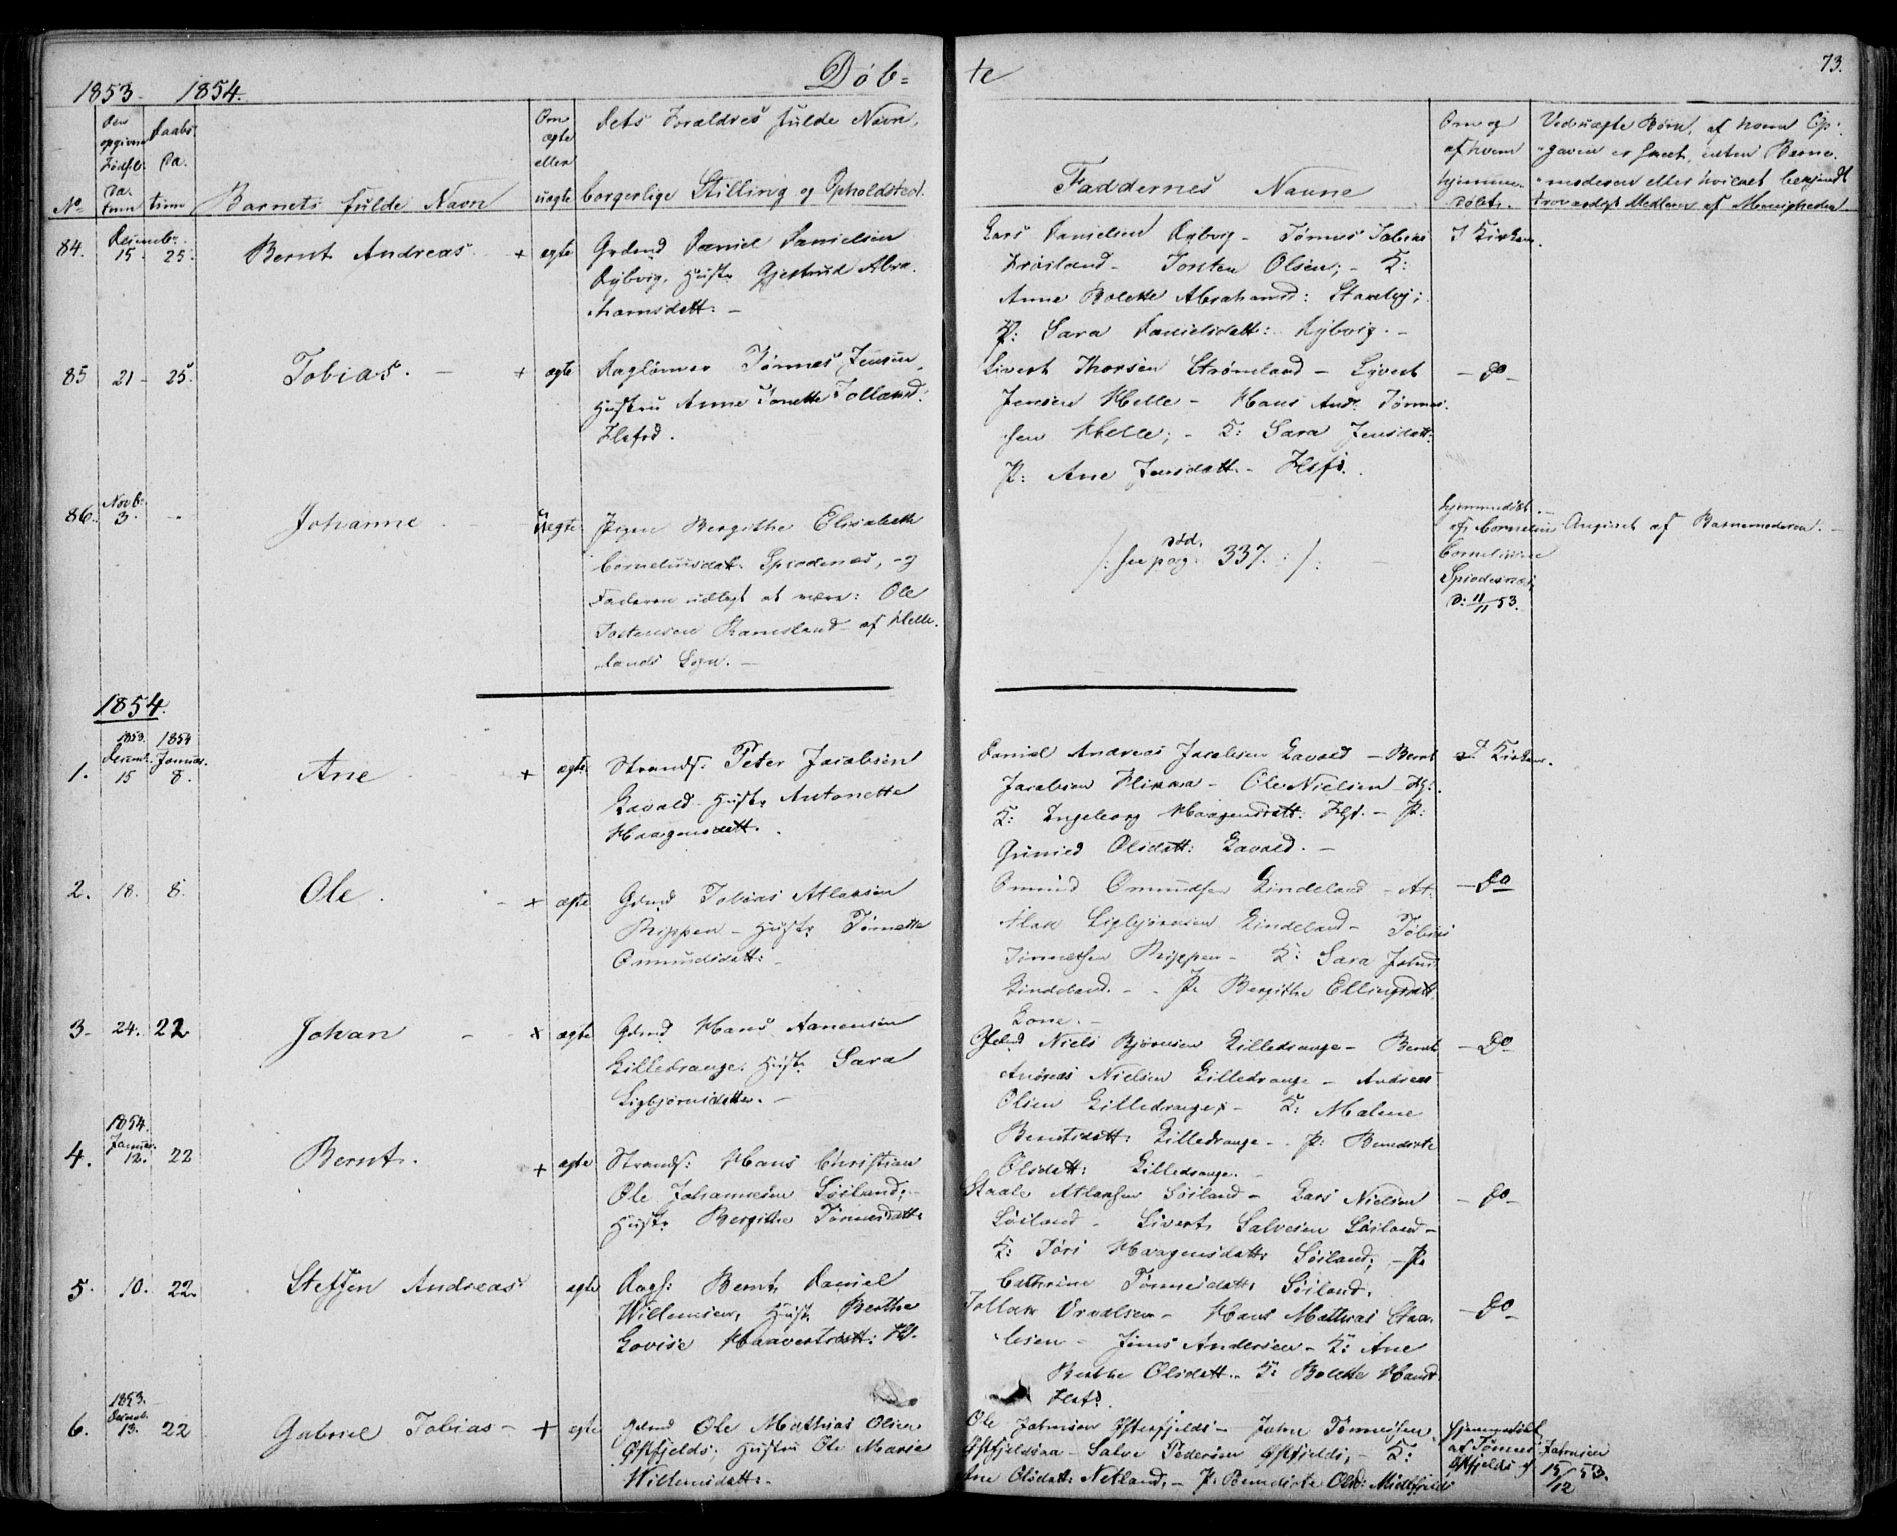 1853. 1854.
Døb=
te
73.
Den opgivne Fødsels Datum
Daabs Datum
No
Barnets fulde Navn
Om ægte eller uægte
Dets Forældres fulde Navn,
borgerlige Stilling og Opholdsted.
Faddernes Navne
Om og af hvem hjemmedøbt.
Ved uægte Børn, af hvem Op-
gaven er skeet, enten Barne-
moderen eller hvilket bekjendt
troværdigt Medlem af Menigheden
84. Decemb: 15 25. Bernt Andreas. + ægte
Grdmd Daniel Danielsen
Rybvig, Hustr Gjertrud Abra-
hamsdatt: -
Lars Danielsen Rybvig - Tønnes Tobias
- Torsten Olsen; - K:
Anne Bolette Abrahamsd:
P: Sara Danielsdatt: Rybvig. -
I Kirken.
85 21 - 25. Tobias. - + ægte
Daglønner Tønnes Jensen,
Hustru Anne Tonette Tollaksd:
Flsfrd.
Sivert Thorsen Strømland - Syvert
Jensen Helle - Hans Andr. Tønnes-
sen Helle; - K: Sara Jensdatt:
P: Ane Jensdatt. - Flsfr.
- do -
86. Novb: 3. - Johanne uægte
Pigen Bergithe Elisabeth
Corneliusdatt. Spiodenes, - og
Faderen udlagt at være: Ole
Tostensen Ramsland af Helle-
lands Sogn. -
/: see pag. død. 337. :/
hjemmedøbt
af Cornelius
Cornelius
Spiodesnæs,
d: 11/11 53.
Angivet af Barnemoderen. -
1854.
1853. Decemb. 1854 Januar.
1. 15 8. Ane + ægte
Strands: Peter Jacobsen
Lavold Hustr Antonette
Haagensdatt.
Daniel Andreas Jacobsen Lavold - Bernt
Jacobsen - Ole Nielsen
K: Engeborg Haagensdatt: Flsf. - P:
Gunild Olsdatt: Lavold. -
I Kirken.
2. 18. 8. Ole. - + ægte
Grdmd Tobias Atlaksen
Reppen - Hustr Tønnette
Omundsdatt:
Omund Omundsen Lindeland - At-
lak Sigbjørnsen Lindeland - Tobias
Tønnessen Reppen - K: Sara Johnsd
Lindeland. - - P: Bergithe Ellingsdatt
Lone. -
- Do
3 - 24. 22 Johan - - + ægte
Grdmd Hans Aanensen
Lilledrange. Hustr Sara
Sigbjørnsdatter. -
Niels Bjørnsen Lilledrange - Bernt
Andreas Nielsen Lilledrange - Andreas
Olsen Lilledrange; - K: Malene
Berntsdatt: Lilledrange - P: Benedicte
Olsdatt: Lilledrange. -
- Do -
1854. Januar.
4. 12. 22 Bernt. + ægte
Strands: Hans Christian
Ole Johannesen Søiland; -
Hustr Bergithe Tønnesdatt:
Staale Atlaksen Søiland - Lars Nielsen
Søiland - Sivert Salvesen Søiland -
K: Tøri Haagensdatt: Søiland; - P:
Cathrine Tønnesdatt: Søiland.
- do -
5. 10. 22. Steffen Andreas ægte
Dags: Bernt Daniel
Willemsen, Hustr Berthe
Lovise Haavertsdatt: Fl.
Tollak Osvalsen - Hans Mathias Staa-
lesen - Jens Andersen - K: Ane
Berthe Olsdatt. - K: Bolette Hansd
Flsfr.
- do -
1853. Decemb.
6. 13. 22 Gabriel Tobias - + ægte
Grdmd Ole Mathias Olsen
Østfjelds; Hustru Ole Marie
Willemsdatt: -
Ole Johnsen Østefjelds - John Tønnessen
Østfjeldsaa - Salve Pedersen Østfjelds; - K:
Ane Olsdatt: Netland; - P: Benedicte Olsd: Midtfjelds
Hjemmedøbt
af Tønnes Johnsen
Østfjelds d. 15/12 53.